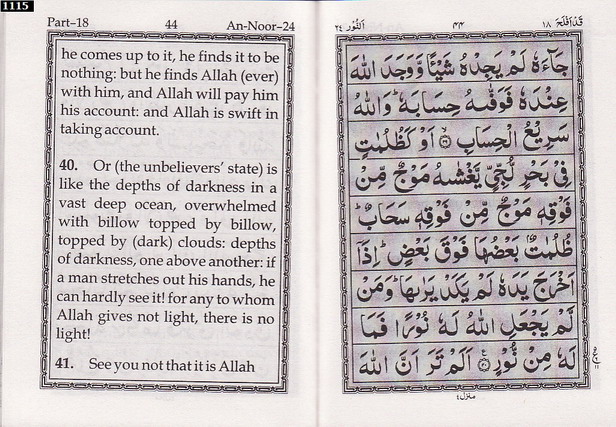 1115
Part–18 44 An-Noor-24
he comes up to it, he finds it to be
nothing: but he finds Allah (ever)
with him, and Allah will pay him
his account: and Allah is swift in
taking account.
40. Or (the unbelievers' state) is
like the depths of darkness in a
vast deep ocean, overwhelmed
with billow topped by billow,
topped by (dark) clouds: depths
of darkness, one above another: if
a man stretches out his hands, he
can hardly see it! for any to whom
Allah gives not light, there is no
light!
41. See you not that it is Allah
قَدْ اَفْلَحَ ١٨ ٤٤ اَلنُّوْر ٢٤
جَآءَهٗ لَمْ يَجِدْهُ شَيْـًٔا وَّوَجَدَ اللّٰهَ
عِنْدَهٗ فَوَفّٰىهُ حِسَابَهٗ ؕ وَاللّٰهُ
سَرِيْعُ الْحِسَابِ ۙ﴿٣٩﴾ اَوْ كَظُلُمٰتٍ
فِىْ بَحْرٍ لُّجِّىٍّ يَّغْشٰىهُ مَوْجٌ مِّنْ
فَوْقِهٖ مَوْجٌ مِّنْ فَوْقِهٖ سَحَابٌ ؕ
ظُلُمٰتٌۢ بَعْضُهَا فَوْقَ بَعْضٍ ؕ اِذَاۤ
اَخْرَجَ يَدَهٗ لَمْ يَكَدْ يَرٰىهَا ؕ وَمَنْ
لَّمْ يَجْعَلِ اللّٰهُ لَهٗ نُوْرًا فَمَا
لَهٗ مِنْ نُّوْرٍ ﴿٤٠﴾ اَلَمْ تَرَ اَنَّ اللّٰهَ
منزل ٤